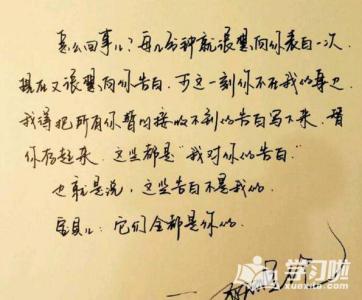 怎么回事儿?每几分钟就很想向你表白一次,
现在又很想向你告白,可这一刻你不在我的身边,
我得把所有你暂时接收不到的告白写下来,替
你存起来,这些都是“我对你的告白”
也就是说,这些告白不是我的,
宝贝儿:它们全都是你的。
学习啦
www.xuexila.com